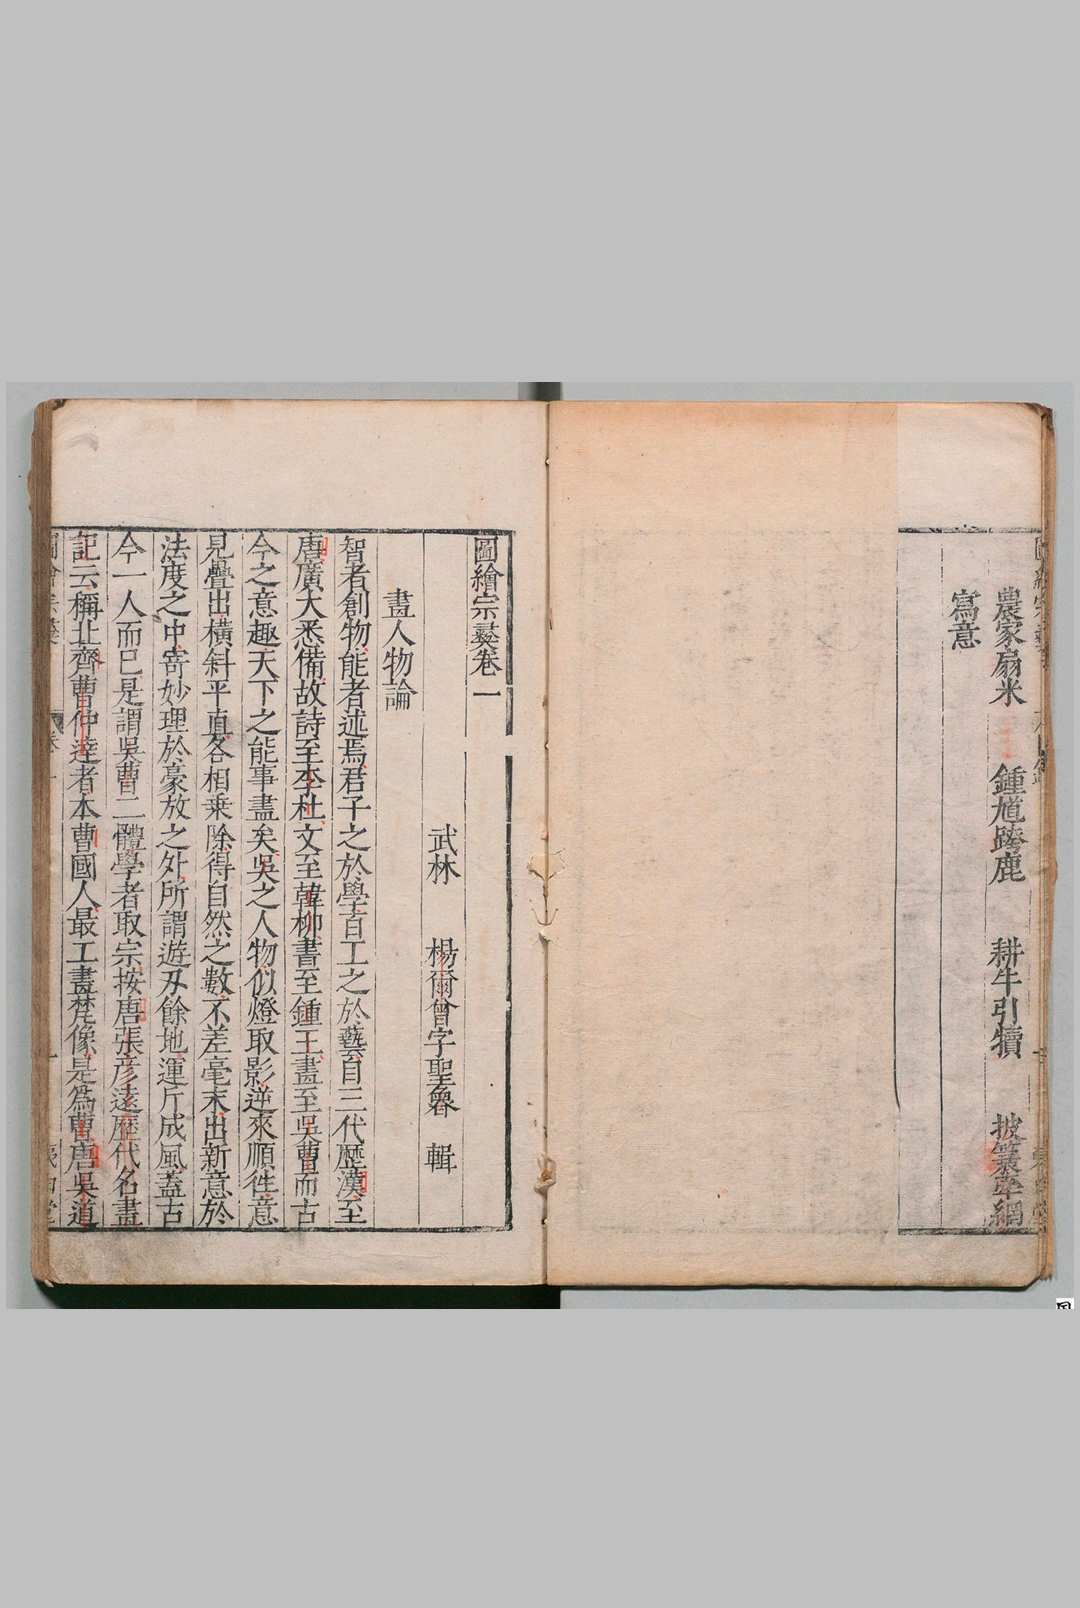 農家扇米 鍾馗跨鹿 耕牛引犢 披蓑牽網
寫意
圖繪宗彝卷一
武林 楊爾曾字聖魯 輯
畫人物論
智者創物能者述焉君子之於學百工之於藝自三代歷漢至
唐廣大悉備故詩至李杜文至韓柳書至鍾王畫至吳曹而古
今之意趣天下之能事盡矣吳之人物似燈取影逆來順往意
見疊出橫斜平直各相乗除得自然之數不差毫末出新意於
法度之中寄妙理於豪放之外所謂遊刃餘地運斤成風蓋古
今一人而已是謂吳曹二體學者取宗按唐張彥遠歷代名畫
記云稱北齊曹仲達者本曹國人最工畫梵像是為曹唐吳道